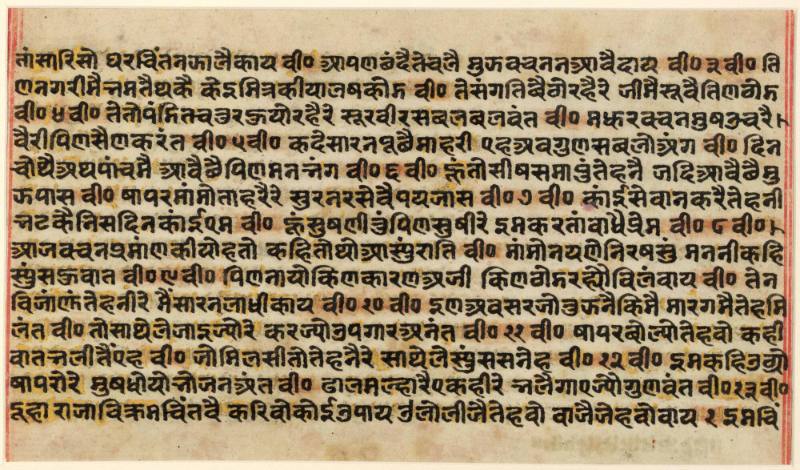 तांसारिसो घरचिंतनकालैकाय वी० आपणछंदैतेचलै मुऊवचननआवैदाय वी० ३ वी० ति
णनगरीमैभमतैथकै केइमित्रकीयाजषकोऊ वी० तेसंगतिथैवोरहैरे जीमैसूवैतिणठोऊ
वी० ४ वी० तेतोपंडितचतुरऊयोरहैरे सूरवीरसबलबलवंत वी० मऊरवचनमुषउचरै।
वैरीपिणसैणकरंत वी० ५ वी० कदेसारनपूछैमाहरी एहअवगुणसबलोअंग वी० दिन
चोथैअथपांचमै आवैछैपिणमनभंग वी० ६ वी० ऊंतोसीषसमापुंतेहनै जदिआवैछैमु
ऊपास वी० षापरमांमोताहरैरे सुरनरसेवैपयजास वी० ७ वी० कांईसेवानकरैतेहनी
भटकैनिसदिनकांईएम वी० ऊंसुषणीतुंपिणसुषीरे इमकरतांवाधैप्रेम वी० ८ वी०।
आजवचनप्रमांणकीयोहतो कहितोथोआसुंराति वी० मांमोनयणेनिरषसुं मननीकहि
सुंसऊवात वी० ९ वी० पिणनायोकिणकारणअजी किणठोऊरह्योविलंबाय वी० तेन
विजांणुंतेहनीरे मैंसारनलाधीकाय वी० १० वी० इणअवसरजोतुऊनैकिमै मारगमैतेहमि
लंत वी० तोसाथेलेजाइज्योरे करज्योउपगारअनंत वी० ११ वी० षापरबोल्योतेहवो कही
वातभलीतैंएह वी० जोमिलसीतोतेहनैरे साथेलेसुंससनेह वी० १२ वी० इमकहिउठ्यो
षापरोरे मुषधोयोभोजनअंत वी० ढालमल्हारैएकहीरे भलैगाएज्योगुणवंत वी० १३ वी०
दूहा राजाविक्रमचिंतवै करिवोकोईउपाय उलोलीजैतेहवो वाजैजेहवोवाय १ इमचिं